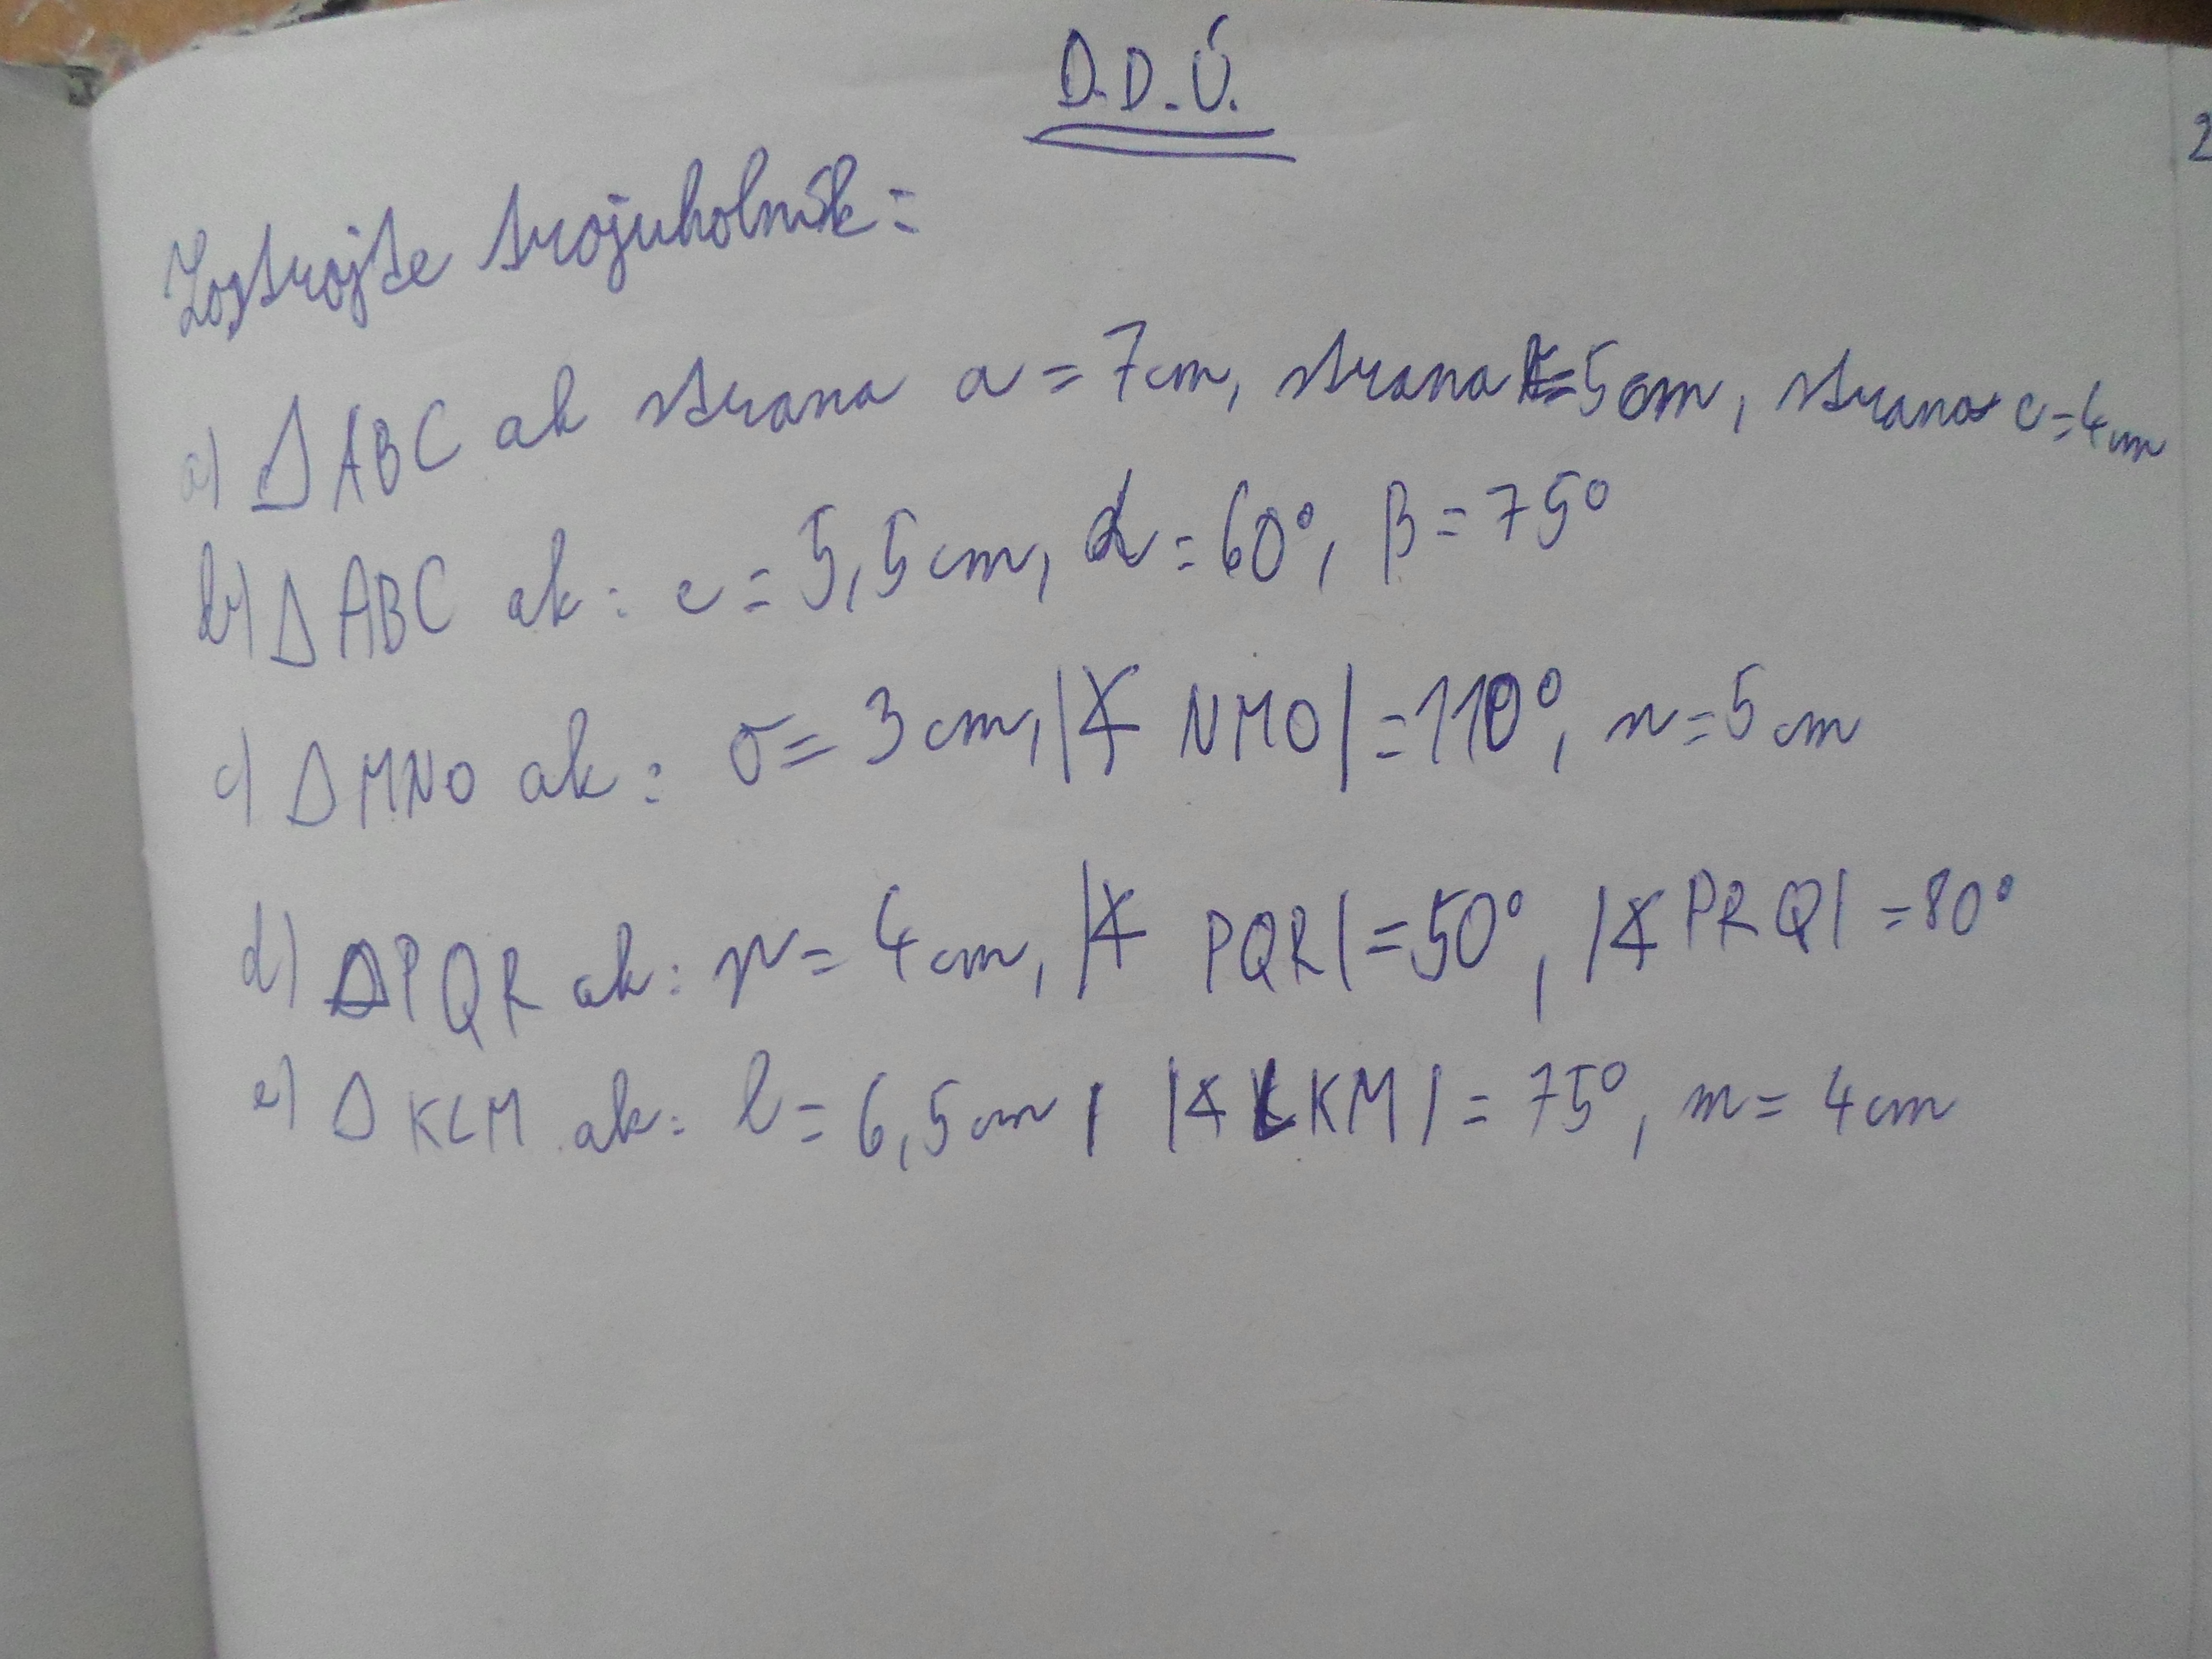 D.D.Ú.
2
Zostrojte trojuholník:
a) △ABC ak strana a = 7cm, strana b=5cm, strana c=4cm
b) △ABC ak: c = 5,5cm, α = 60°, β = 75°
c) △MNO ak: o = 3cm, |∢ NMO| = 110°, n = 5cm
d) △PQR ak: p = 4cm, |∢ PQR| = 50°, |∢ PRQ| = 80°
e) △KLM ak: l = 6,5cm, |∢ LKM| = 75°, m = 4cm